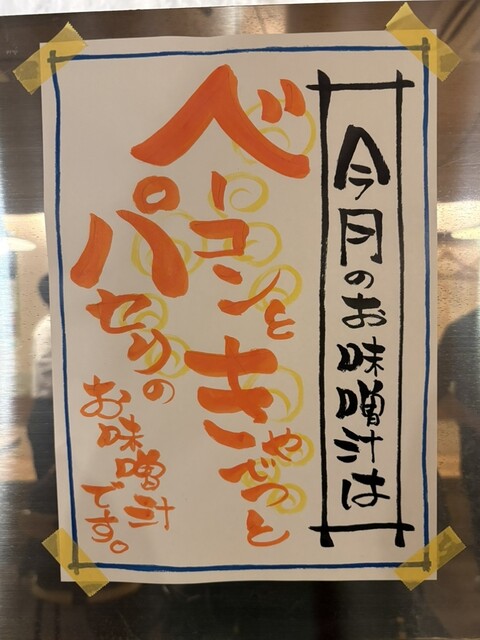 今月のお味噌汁は
ベーコンときゃべつと
パセリの
お味噌汁
です。